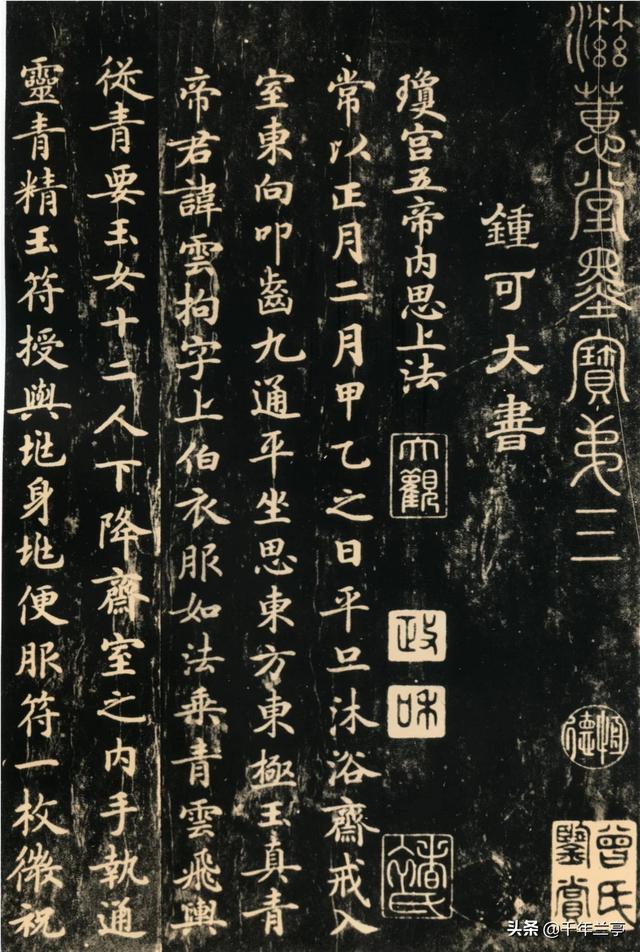 滋蕙堂墨寶弟三
恒德
曾氏鑒賞
鍾可大書
瓊宫五帝内思上法
大觀
政
和
常以正月二月甲乙之日平旦沐浴齋戒入
室東向叩齒九通平坐思東方東極玉真青
帝君諱雲拘字上伯衣服如法乘青雲飛輿
從青要玉女十二人下降齋室之内手執通
靈青精玉符授與地身地便服符一枚微祝
头条 @千年兰亭